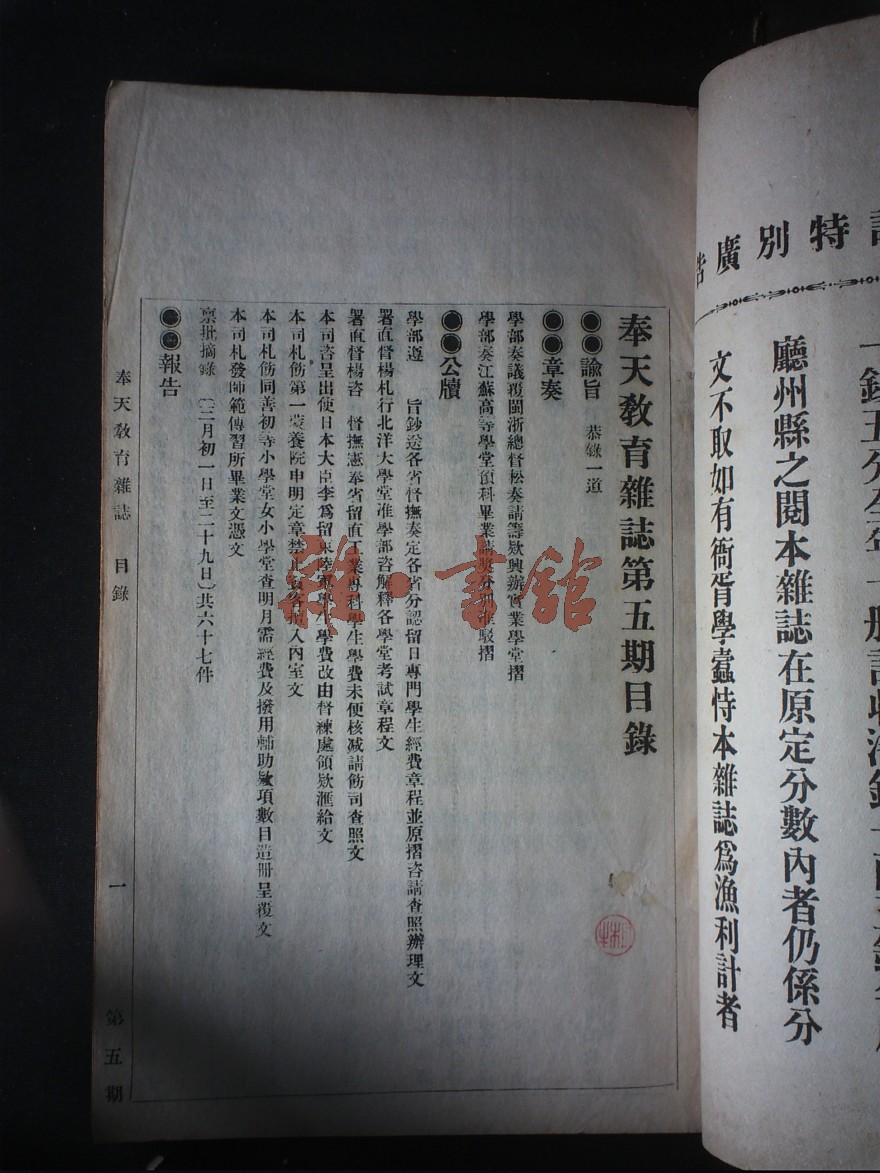 特別廣告
廳州縣之閱本雜誌在原定分數內者仍係分
文不取如有衙胥學蠹恃本雜誌爲漁利計者
奉天教育雜誌第五期目錄
●●諭旨 恭錄一道
●●章奏
學部奏議覆閩浙總督松奏請籌款興辦實業學堂摺
學部奏江蘇高等學堂預科畢業請獎分別准駁摺
●●公牘
學部遵 旨鈔送各省督撫奏定各省分認留日專門學生經費章程並原摺咨請查照辦理文
署直督楊札行北洋大學堂准學部咨解釋各學堂考試章程文
署直督楊咨 督撫憲奉省留直工業專科學生學費未便核减請飭司查照文
本司咨呈出使日本大臣李爲留東陸軍學生學費改由督練處領欵滙給文
本司札飭第一蒙養院申明定章禁止女客擅入內室文
本司札飭同善初等小學堂女小學堂查明月需經費及撥用輔助欵項數目造册呈覆文
本司札發師範傳習所畢業文憑文
稟批摘錄（三月初一日至二十九日）共六十七件
●●報告
奉天教育雜誌 目錄 一 第五期
雜·書館